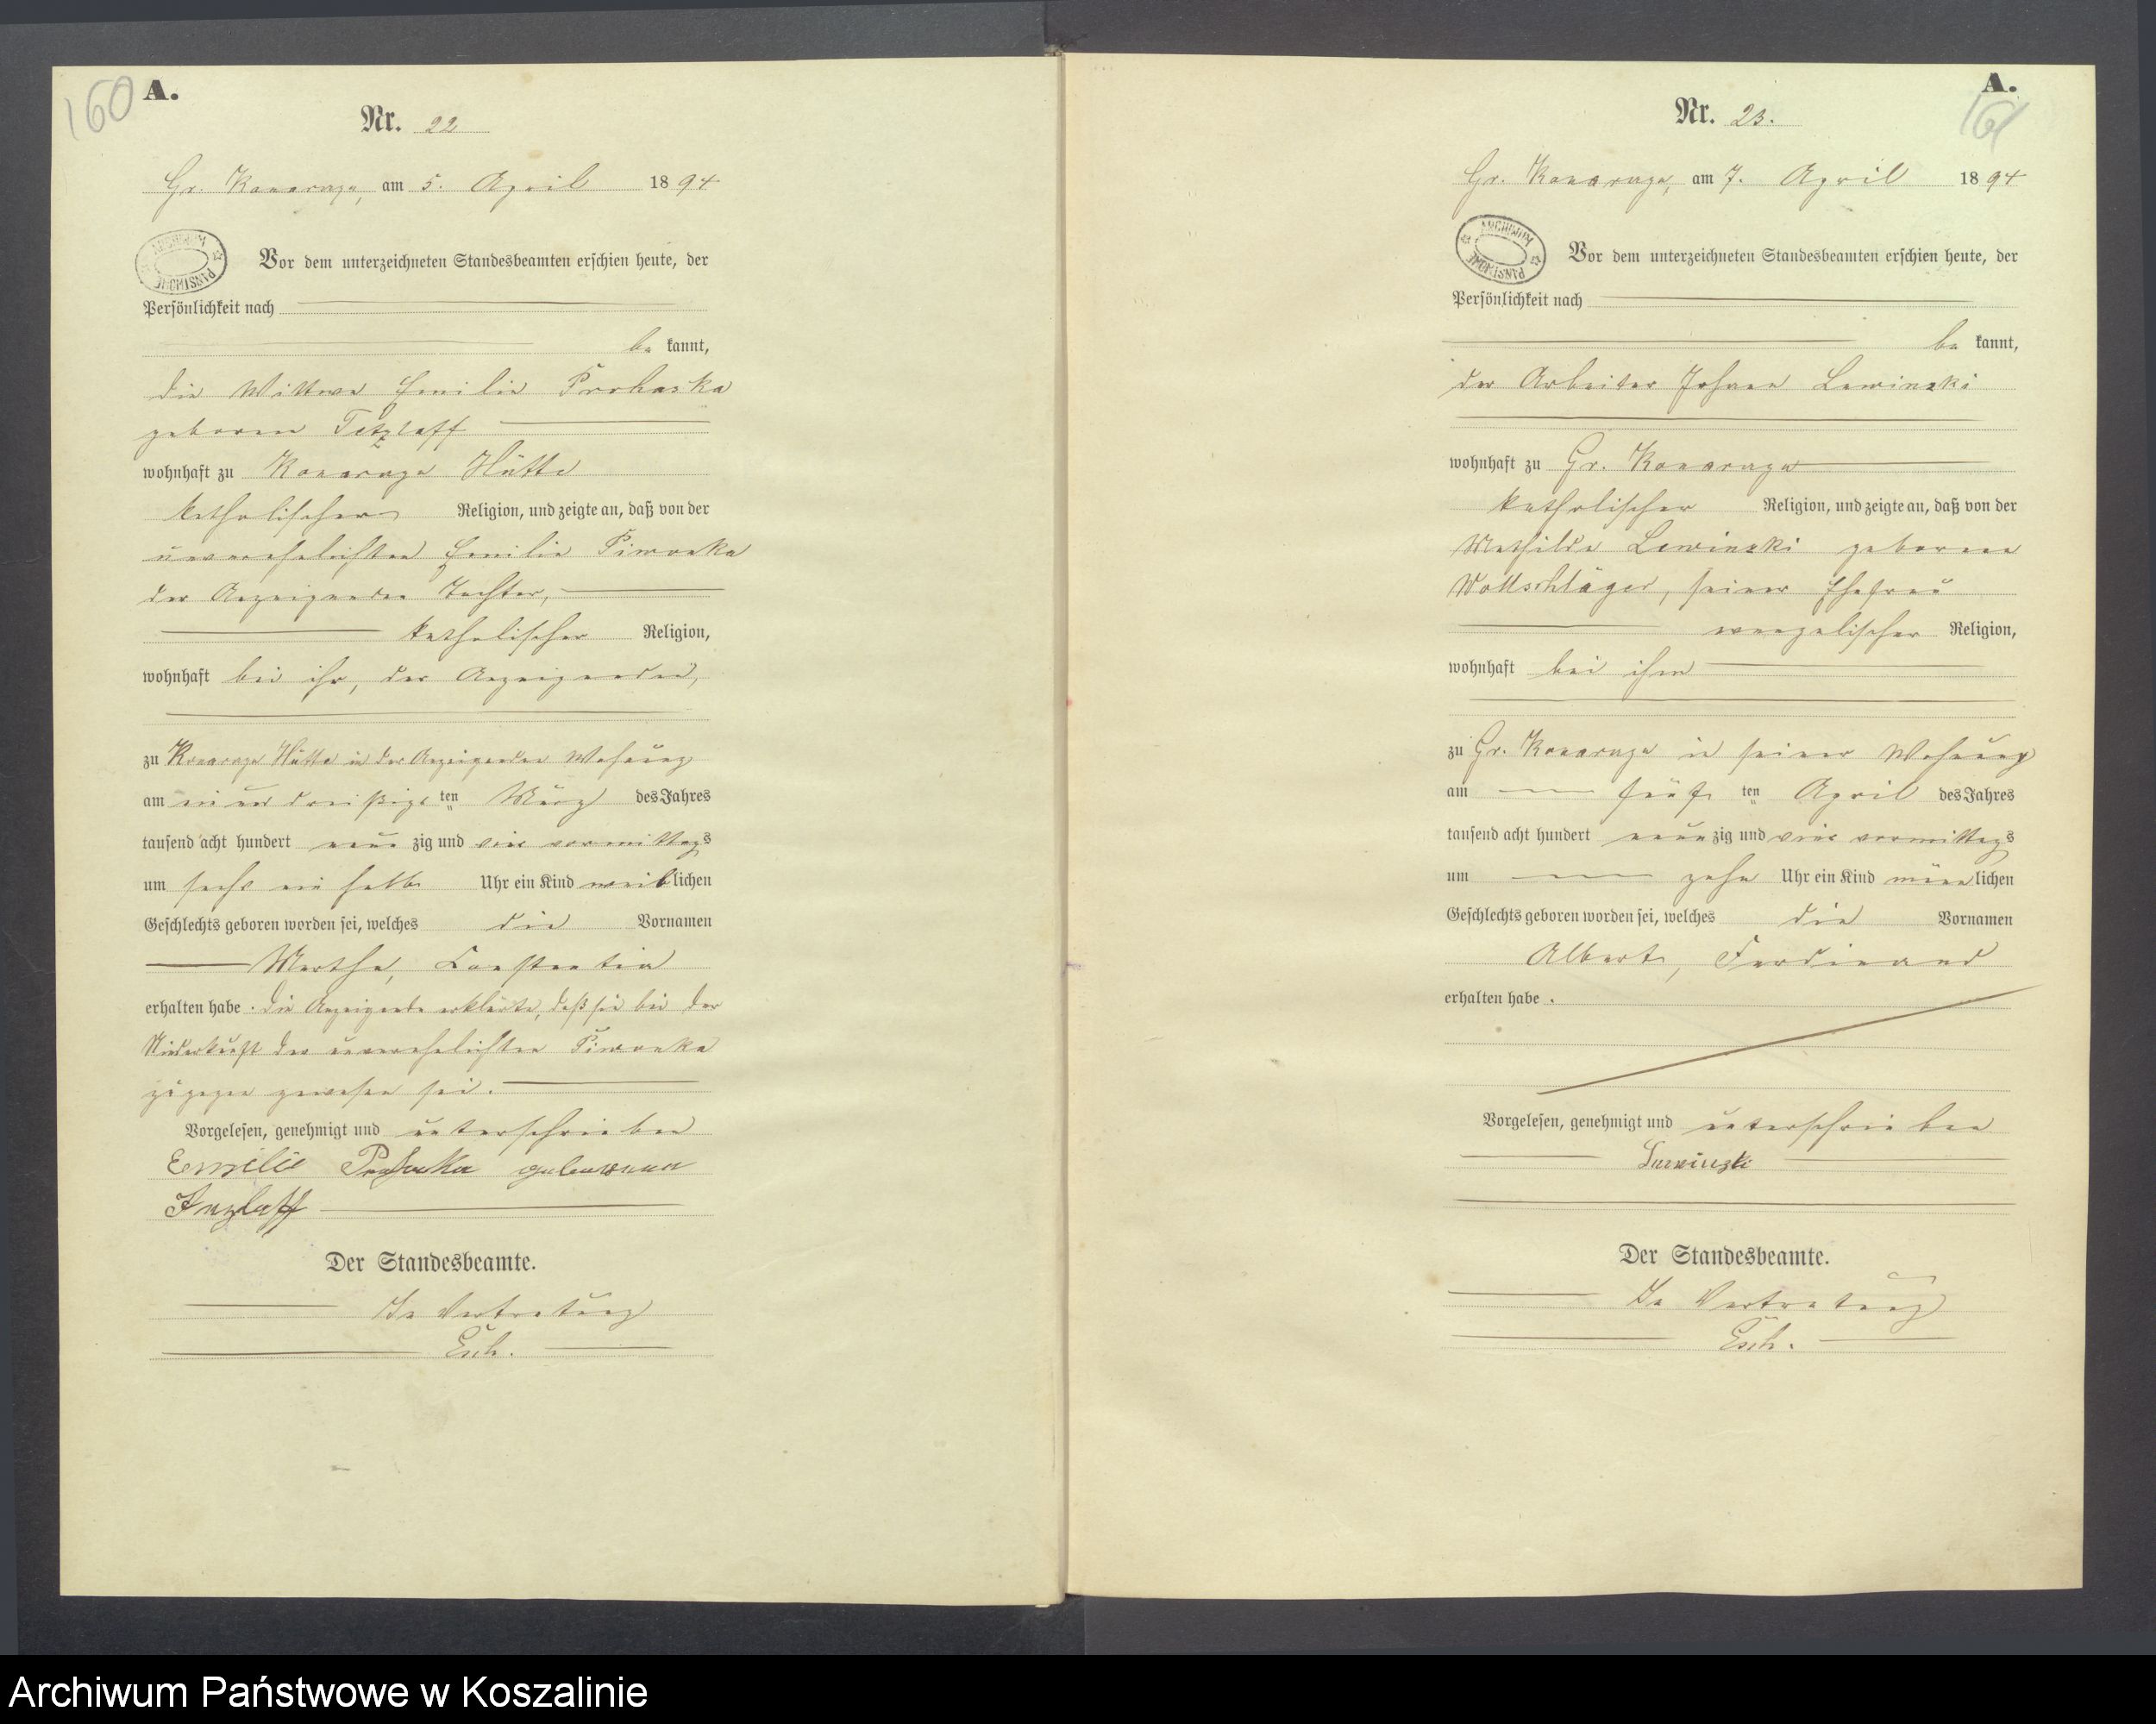 160
A.
Nr. 22
Gr. Konarzyn, am 5. April 1894
ARCHIWUM PAŃSTWOWE
Vor dem unterzeichneten Standesbeamten erschien heute, der
Persönlichkeit nach
be kannt,
die Wittwe Emilie Prohaska
geborene Tetzlaff
wohnhaft zu Hütte
katholischer Religion, und zeigte an, daß von der
unverehelichten Emilie Piwonka
der Anzeigenden Tochter,
katholischer Religion,
wohnhaft bei ihr, der Anzeigenden,
zu Hütte in der Anzeigenden Wohnung
am ein und dreißigsten März des Jahres
tausend acht hundert neun zig und vier vormittags
um sechs ein halb Uhr ein Kind weiblichen
Geschlechts geboren worden sei, welches die Vornamen
Martha, Constantia
erhalten habe. Die Anzeigende erklärte, daß sie bei der
Niederkunft der unverehelichten Piwonka
zugegen gewesen sei.
Vorgelesen, genehmigt und unterschrieben
Emilie Prohaska geborenen
Tetzlaff
Der Standesbeamte.
In Vertretung
Esch.
A.
161
Nr. 23.
Gr. Konarzyn, am 7. April 1894
ARCHIWUM PAŃSTWOWE
Vor dem unterzeichneten Standesbeamten erschien heute, der
Persönlichkeit nach
be kannt,
der Arbeiter Johann Lewinski
wohnhaft zu Gr. Konarzyn
katholischer Religion, und zeigte an, daß von der
Mathilde Lewinski geborene
Wollschläger, seiner Ehefrau
evangelischer Religion,
wohnhaft bei ihm
zu Gr. Konarzyn in seiner Wohnung
am fünf ten April des Jahres
tausend acht hundert neun zig und vier vormittags
um zehn Uhr ein Kind männlichen
Geschlechts geboren worden sei, welches die Vornamen
Albert, Ferdinand
erhalten habe.
Vorgelesen, genehmigt und unterschrieben
Lewinski
Der Standesbeamte.
In Vertretung
Esch.
Archiwum Państwowe w Koszalinie